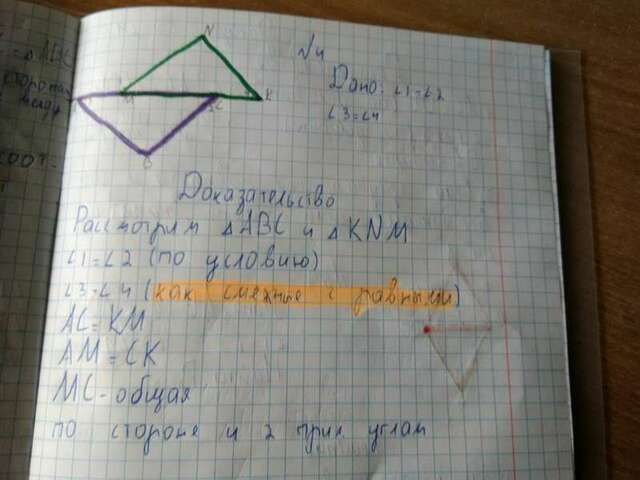 N
№4
= △ABC
Дано: ∠1=∠2
сторона
∠3=∠4
M
C
K
B
Доказательство
Рассмотрим △ABC и △KNM
∠1=∠2 (по условию)
∠3=∠4 (как смежные с равными)
AC=KM
AM=CK
MC-общая
по стороне и 2 прил углам